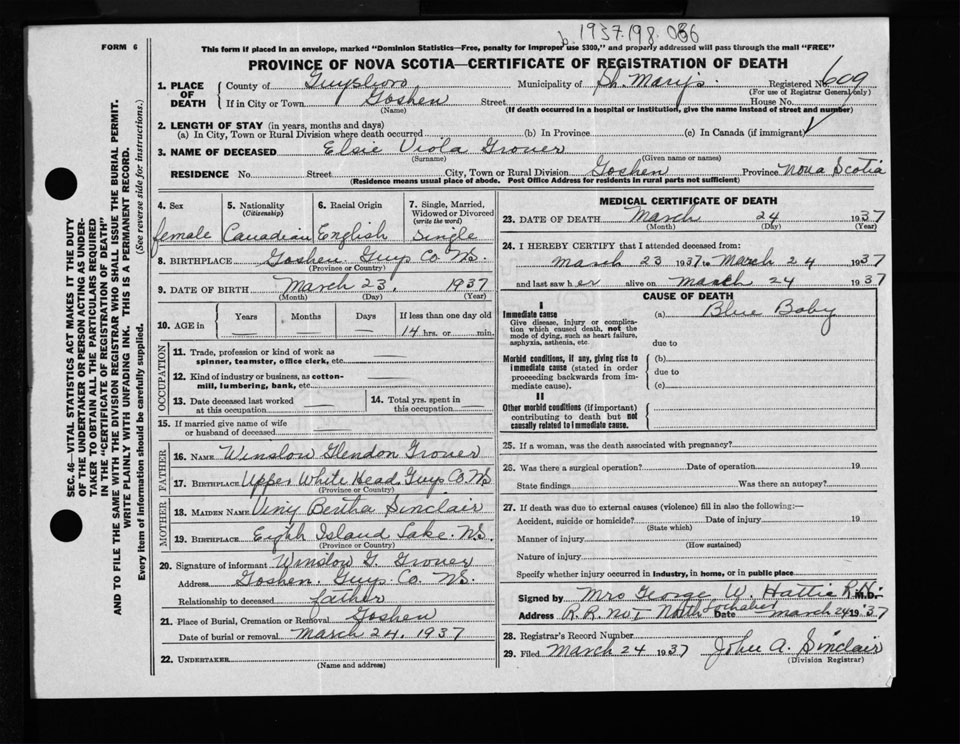 b. 1937.198.036
FORM 6
This form if placed in an envelope, marked "Dominion Statistics—Free, penalty for improper use $300," and properly addressed will pass through the mail "FREE"
PROVINCE OF NOVA SCOTIA—CERTIFICATE OF REGISTRATION OF DEATH
SEC. 46—VITAL STATISTICS ACT MAKES IT THE DUTY
OF THE UNDERTAKER OR PERSON ACTING AS UNDER-
TAKER TO OBTAIN ALL THE PARTICULARS REQUIRED
IN THE "CERTIFICATE OF REGISTRATION OF DEATH"
AND TO FILE THE SAME WITH THE DIVISION REGISTRAR WHO SHALL ISSUE THE BURIAL PERMIT.
WRITE PLAINLY WITH UNFADING INK. THIS IS A PERMANENT RECORD.
Every item of information should be carefully supplied. (See reverse side for instructions.)
1. PLACE OF DEATH
County of Guysboro Municipality of St. Mary's Registered No. 609
(For use of Registrar General only)
If in City or Town Goshen Street House No.
(Name) (If death occurred in a hospital or institution, give the name instead of street and number)
2. LENGTH OF STAY (in years, months and days)
(a) In City, Town or Rural Division where death occurred (b) In Province (c) In Canada (if immigrant)
3. NAME OF DECEASED Elsie Viola Grover
(Surname) (Given name or names)
RESIDENCE No. Street City, Town or Rural Division Goshen Province Nova Scotia
(Residence means usual place of abode. Post Office Address for residents in rural parts not sufficient)
4. Sex
female
5. Nationality
(Citizenship)
Canadian
6. Racial Origin
English
7. Single, Married,
Widowed or Divorced
(write the word)
Single
8. BIRTHPLACE Goshen Guys Co NS.
(Province or Country)
9. DATE OF BIRTH March 23, 1937
(Month) (Day) (Year)
10. AGE in
Years Months Days If less than one day old
— — — 14 hrs. or min.
OCCUPATION
11. Trade, profession or kind of work as
spinner, teamster, office clerk, etc. —
12. Kind of industry or business, as cotton-
mill, lumbering, bank, etc. —
13. Date deceased last worked
at this occupation —
14. Total yrs. spent in
this occupation —
15. If married give name of wife
or husband of deceased
FATHER
16. NAME Winslow Glendon Grover
17. BIRTHPLACE Upper White Head Guys Co. NS
(Province or Country)
MOTHER
18. MAIDEN NAME Viny Bertha Sinclair
19. BIRTHPLACE Eight Island Lake. NS.
(Province or Country)
20. Signature of informant Winslow G. Grover
Address Goshen. Guys. Co. NS.
Relationship to deceased father
21. Place of Burial, Cremation or Removal Goshen
Date of burial or removal March 24, 1937
22. UNDERTAKER
(Name and address)
MEDICAL CERTIFICATE OF DEATH
23. DATE OF DEATH March 24 1937
(Month) (Day) (Year)
24. I HEREBY CERTIFY that I attended deceased from:
March 23 1937 to March 24 1937
and last saw her alive on March 24 1937
CAUSE OF DEATH
I
Immediate cause
Give disease, injury or complica-
tion which caused death, not the
mode of dying, such as heart failure,
asphyxia, asthenia, etc.
(a) Blue Baby
due to
Morbid conditions, if any, giving rise to
immediate cause (stated in order
proceeding backwards from im-
mediate cause).
(b)
due to
(c)
II
Other morbid conditions (if important)
contributing to death but not
causally related to immediate cause.
25. If a woman, was the death associated with pregnancy?
26. Was there a surgical operation? Date of operation 19
State findings Was there an autopsy?
27. If death was due to external causes (violence) fill in also the following:—
Accident, suicide or homicide? Date of injury 19
(State which)
Manner of injury
(How sustained)
Nature of injury
Specify whether injury occurred in industry, in home, or in public place
Signed by Mrs George W. Hattie R.N. M.D.
Address R.R. No 1 North Lochaber Date March 24 1937
28. Registrar's Record Number
29. Filed March 24 1937 John A. Sinclair
(Division Registrar)